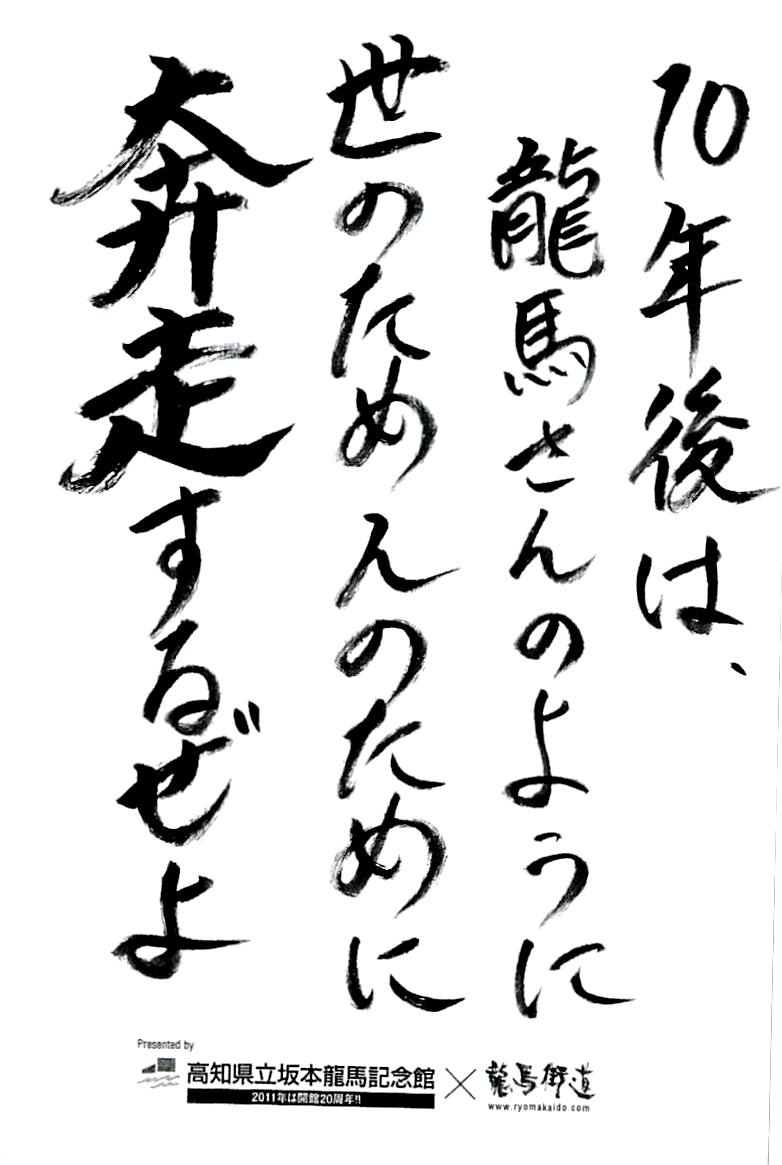 10年後は、
龍馬さんのように
世のため人のために
奔走するぜよ
Presented by
高知県立坂本龍馬記念館
2011年は開館20周年!!
×
龍馬街道
www.ryomakaido.com